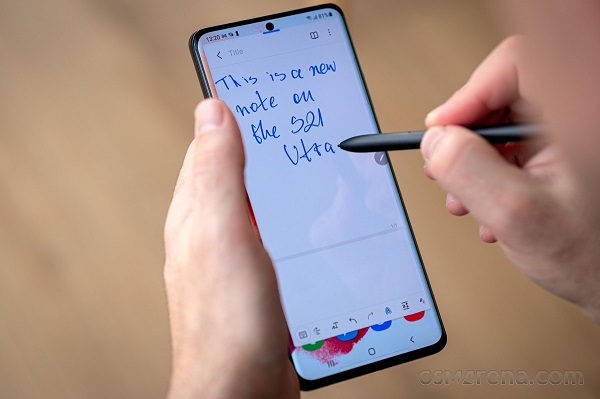 12:20 81%
Title
This is a new
note on
the S21
Ultra
GSMArena.com